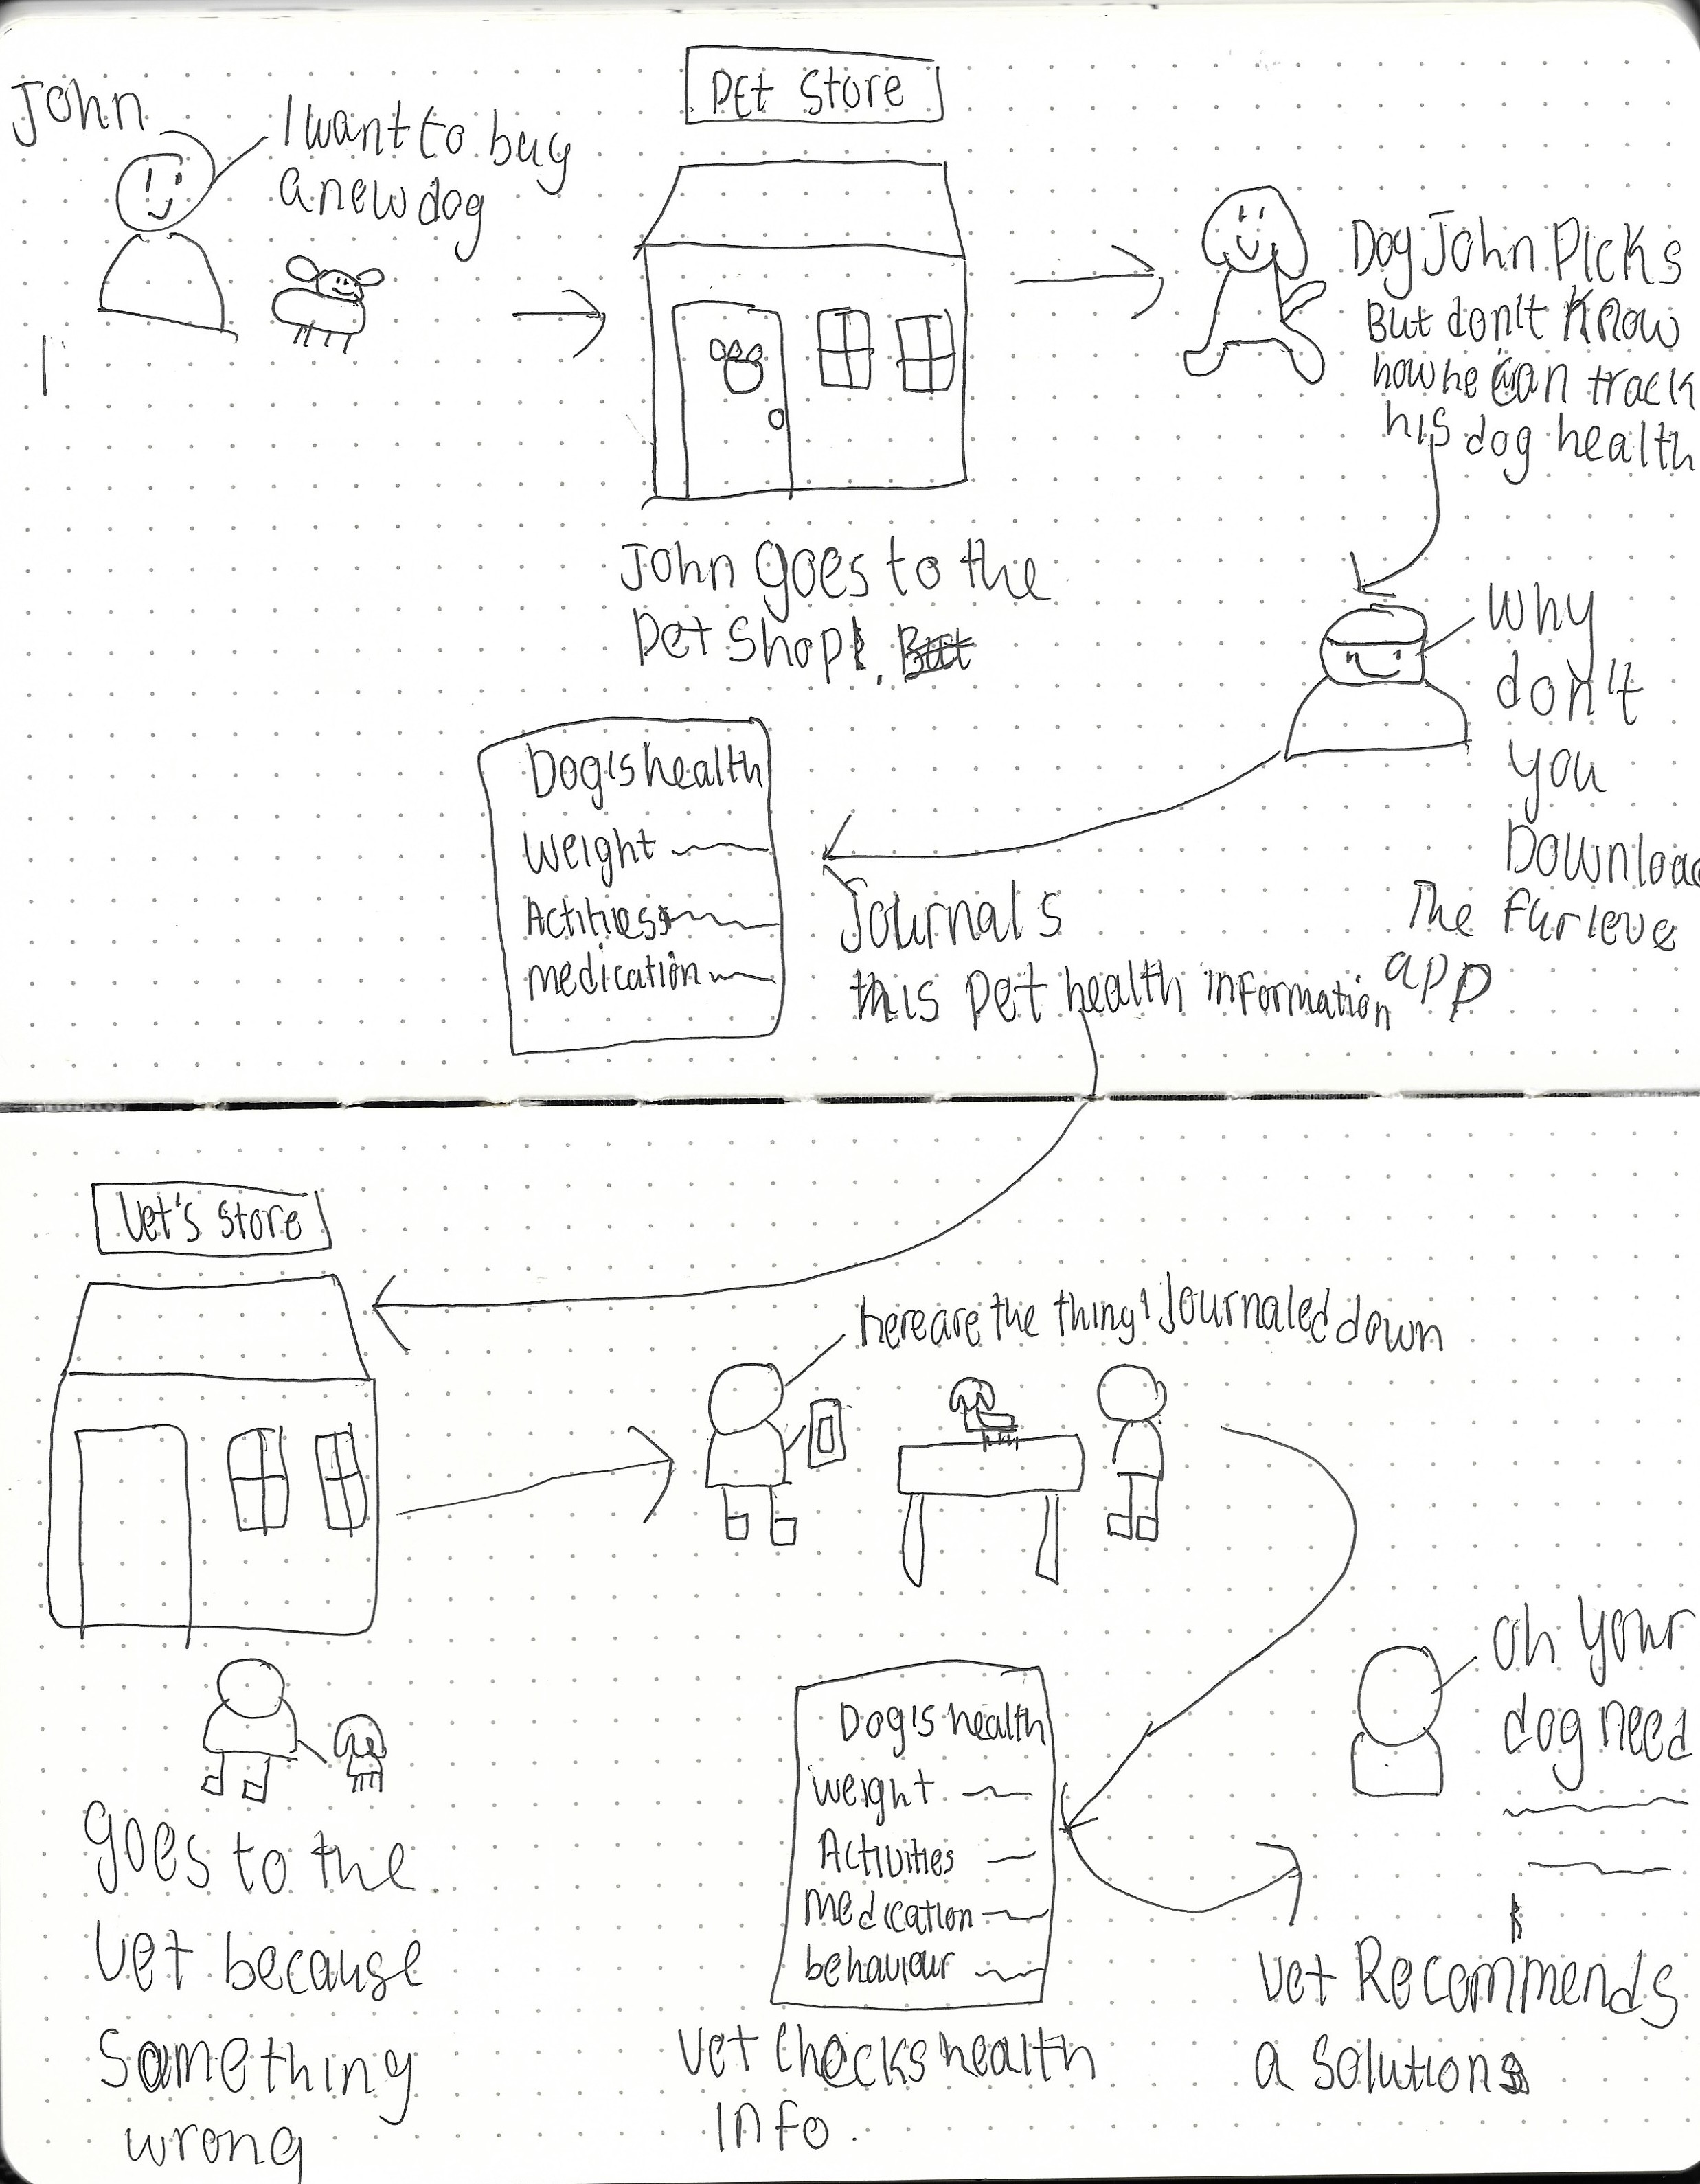 John
I want to buy
a new dog
Pet Store
John goes to the
Pet Shop.
Dog John Picks
But don't know
how he can track
his dog health
Why
don't
you
Download
The furleve
app
Dog's health
Weight
medication
Journals
this pet health information
Vet's store
goes to the
Vet because
Something
wrong
here are the thing I Journaled down
Dog's health
weight
Activities
medication
behaviour
Vet checks health
Info.
oh your
dog need
Vet Recommends
a Solution